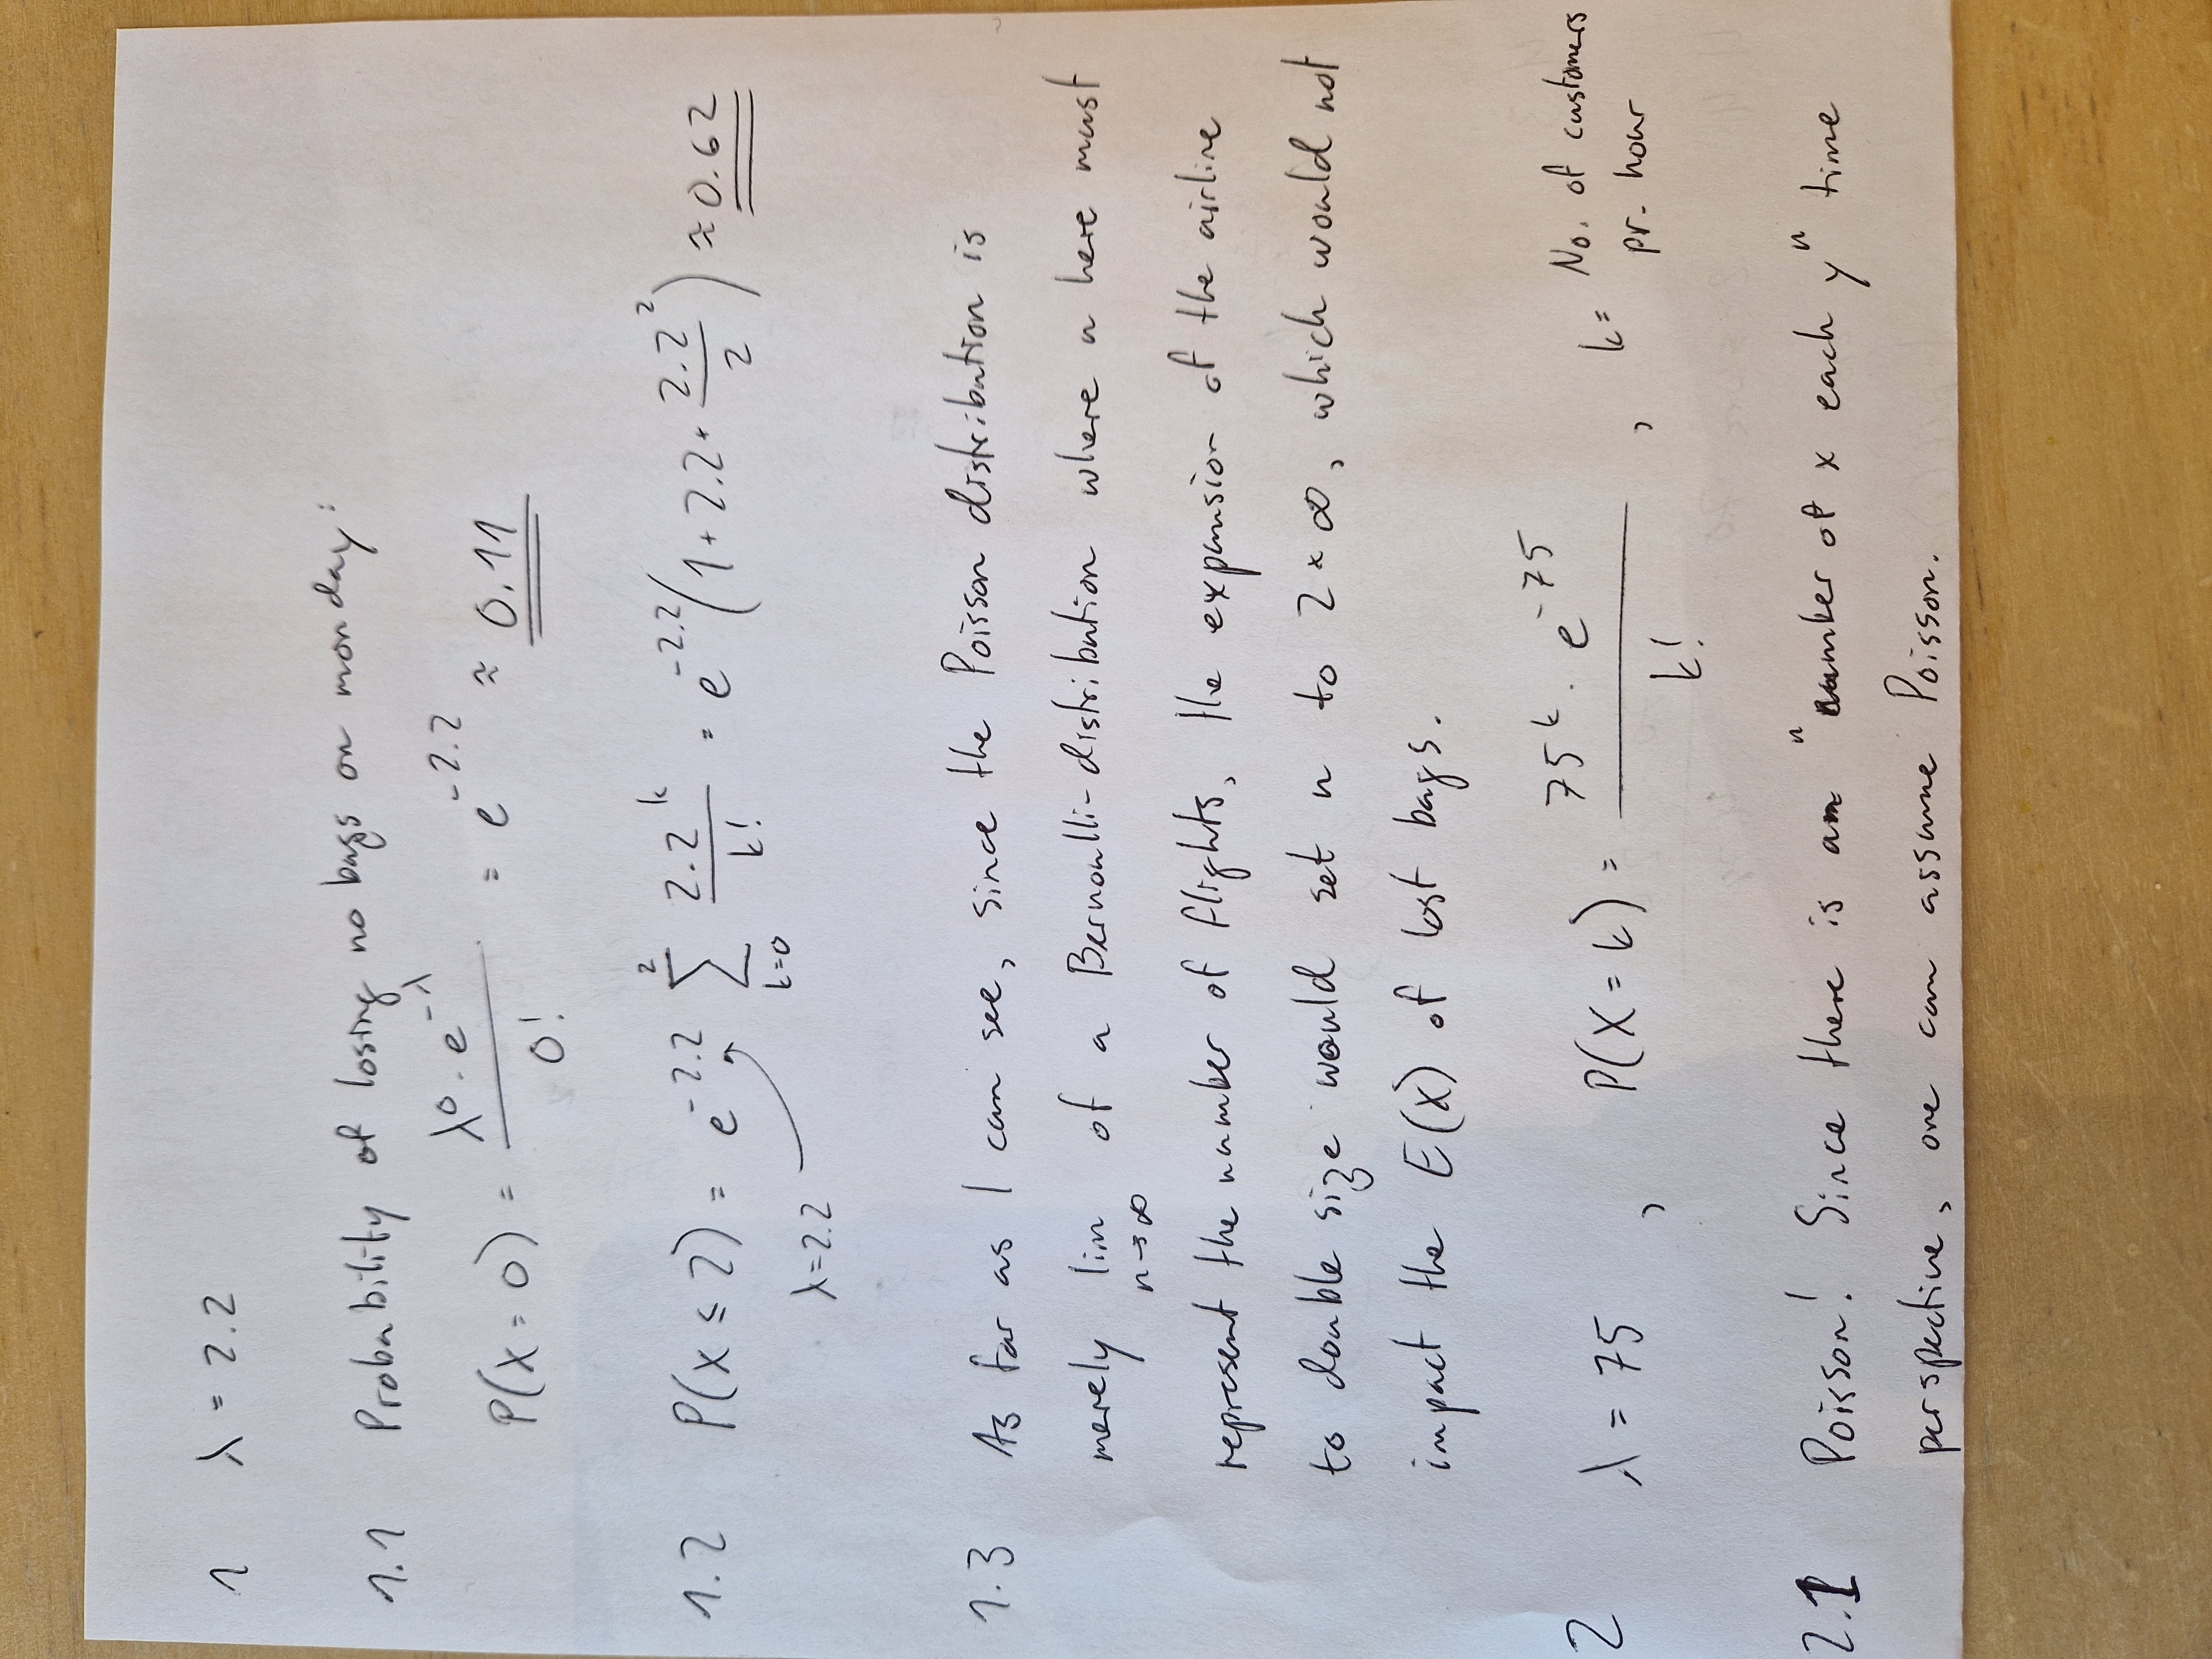 1 λ = 2.2
1.1 Probability of losing no bags on monday:
P(X = 0) = λ⁰ · e^(-λ) / 0! = e^(-2.2) ≈ 0.11
1.2 P(X ≤ 2) = e^(-2.2) ∑_(k=0)^2 2.2^k / k! = e^(-2.2) (1 + 2.2 + 2.2² / 2) ≈ 0.62
λ=2.2
1.3 As far as I can see, since the Poisson distribution is
merely lim n→∞ of a Bernoulli-distribution where n here must
represent the number of flights, the expansion of the airline
to double size would set n to 2 × ∞, which would not
impact the E(X) of lost bags.
2 λ = 75 , P(X = k) = 75^k · e^(-75) / k! , k = No. of customers
pr. hour
2.1 Poisson! Since there is an "number of x each y" time
perspective, one can assume Poisson.